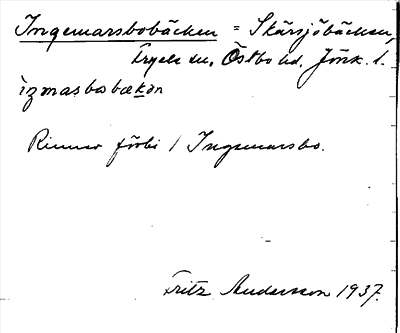 Ingemarsbobäcken = Skärsjöbäcken,
Tryele sn, Östbo hd, Jönk. l.
ìzmasbobækən
Rinner förbi / Ingemarsbo.
Fritz Andersson 1937.